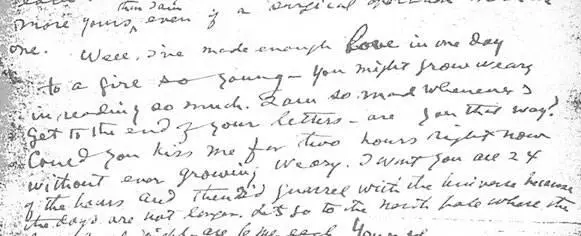 than I am
more yours, even if a surgical
one. Well, I've made enough love in one day
to a girl so young - you might grow weary
in reading so much. I am so mad whenever I
get to the end of your letters - are you that way?
Could you kiss me for two hours right now
without ever growing weary. I want you all 24
of the hours and then I'd quarrel with the universe because
the days are not longer. Let's go to the north pole where the
are 6 mo. each